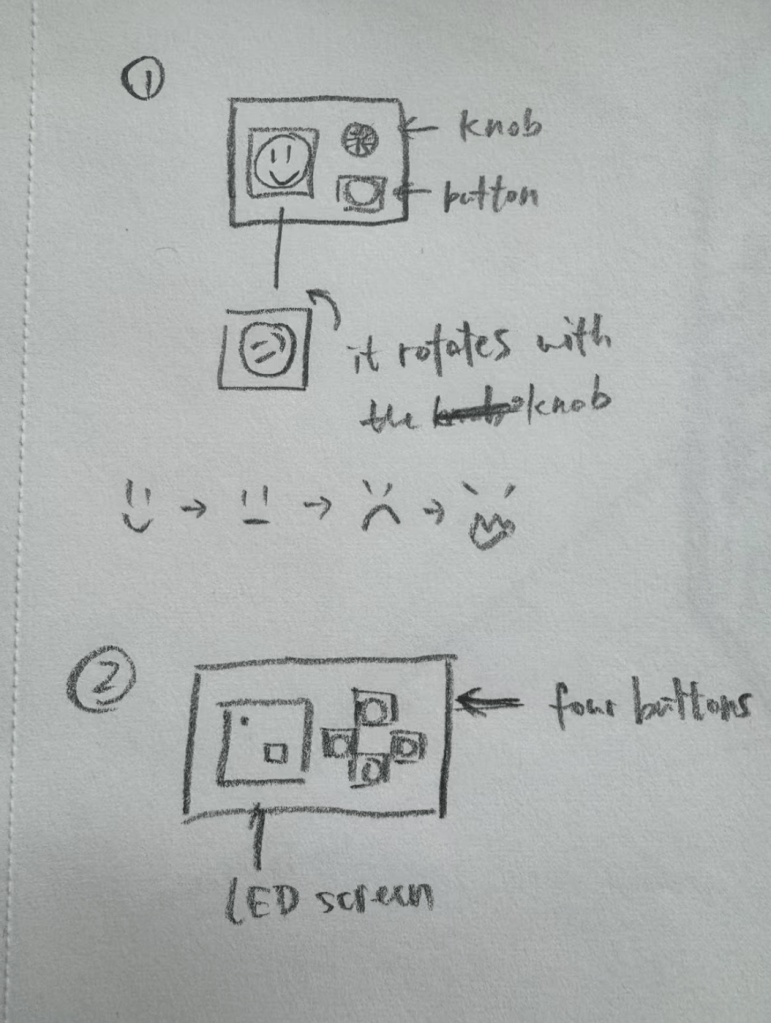 ①
knob
button
it rotates with
the knob
②
four buttons
LED screen